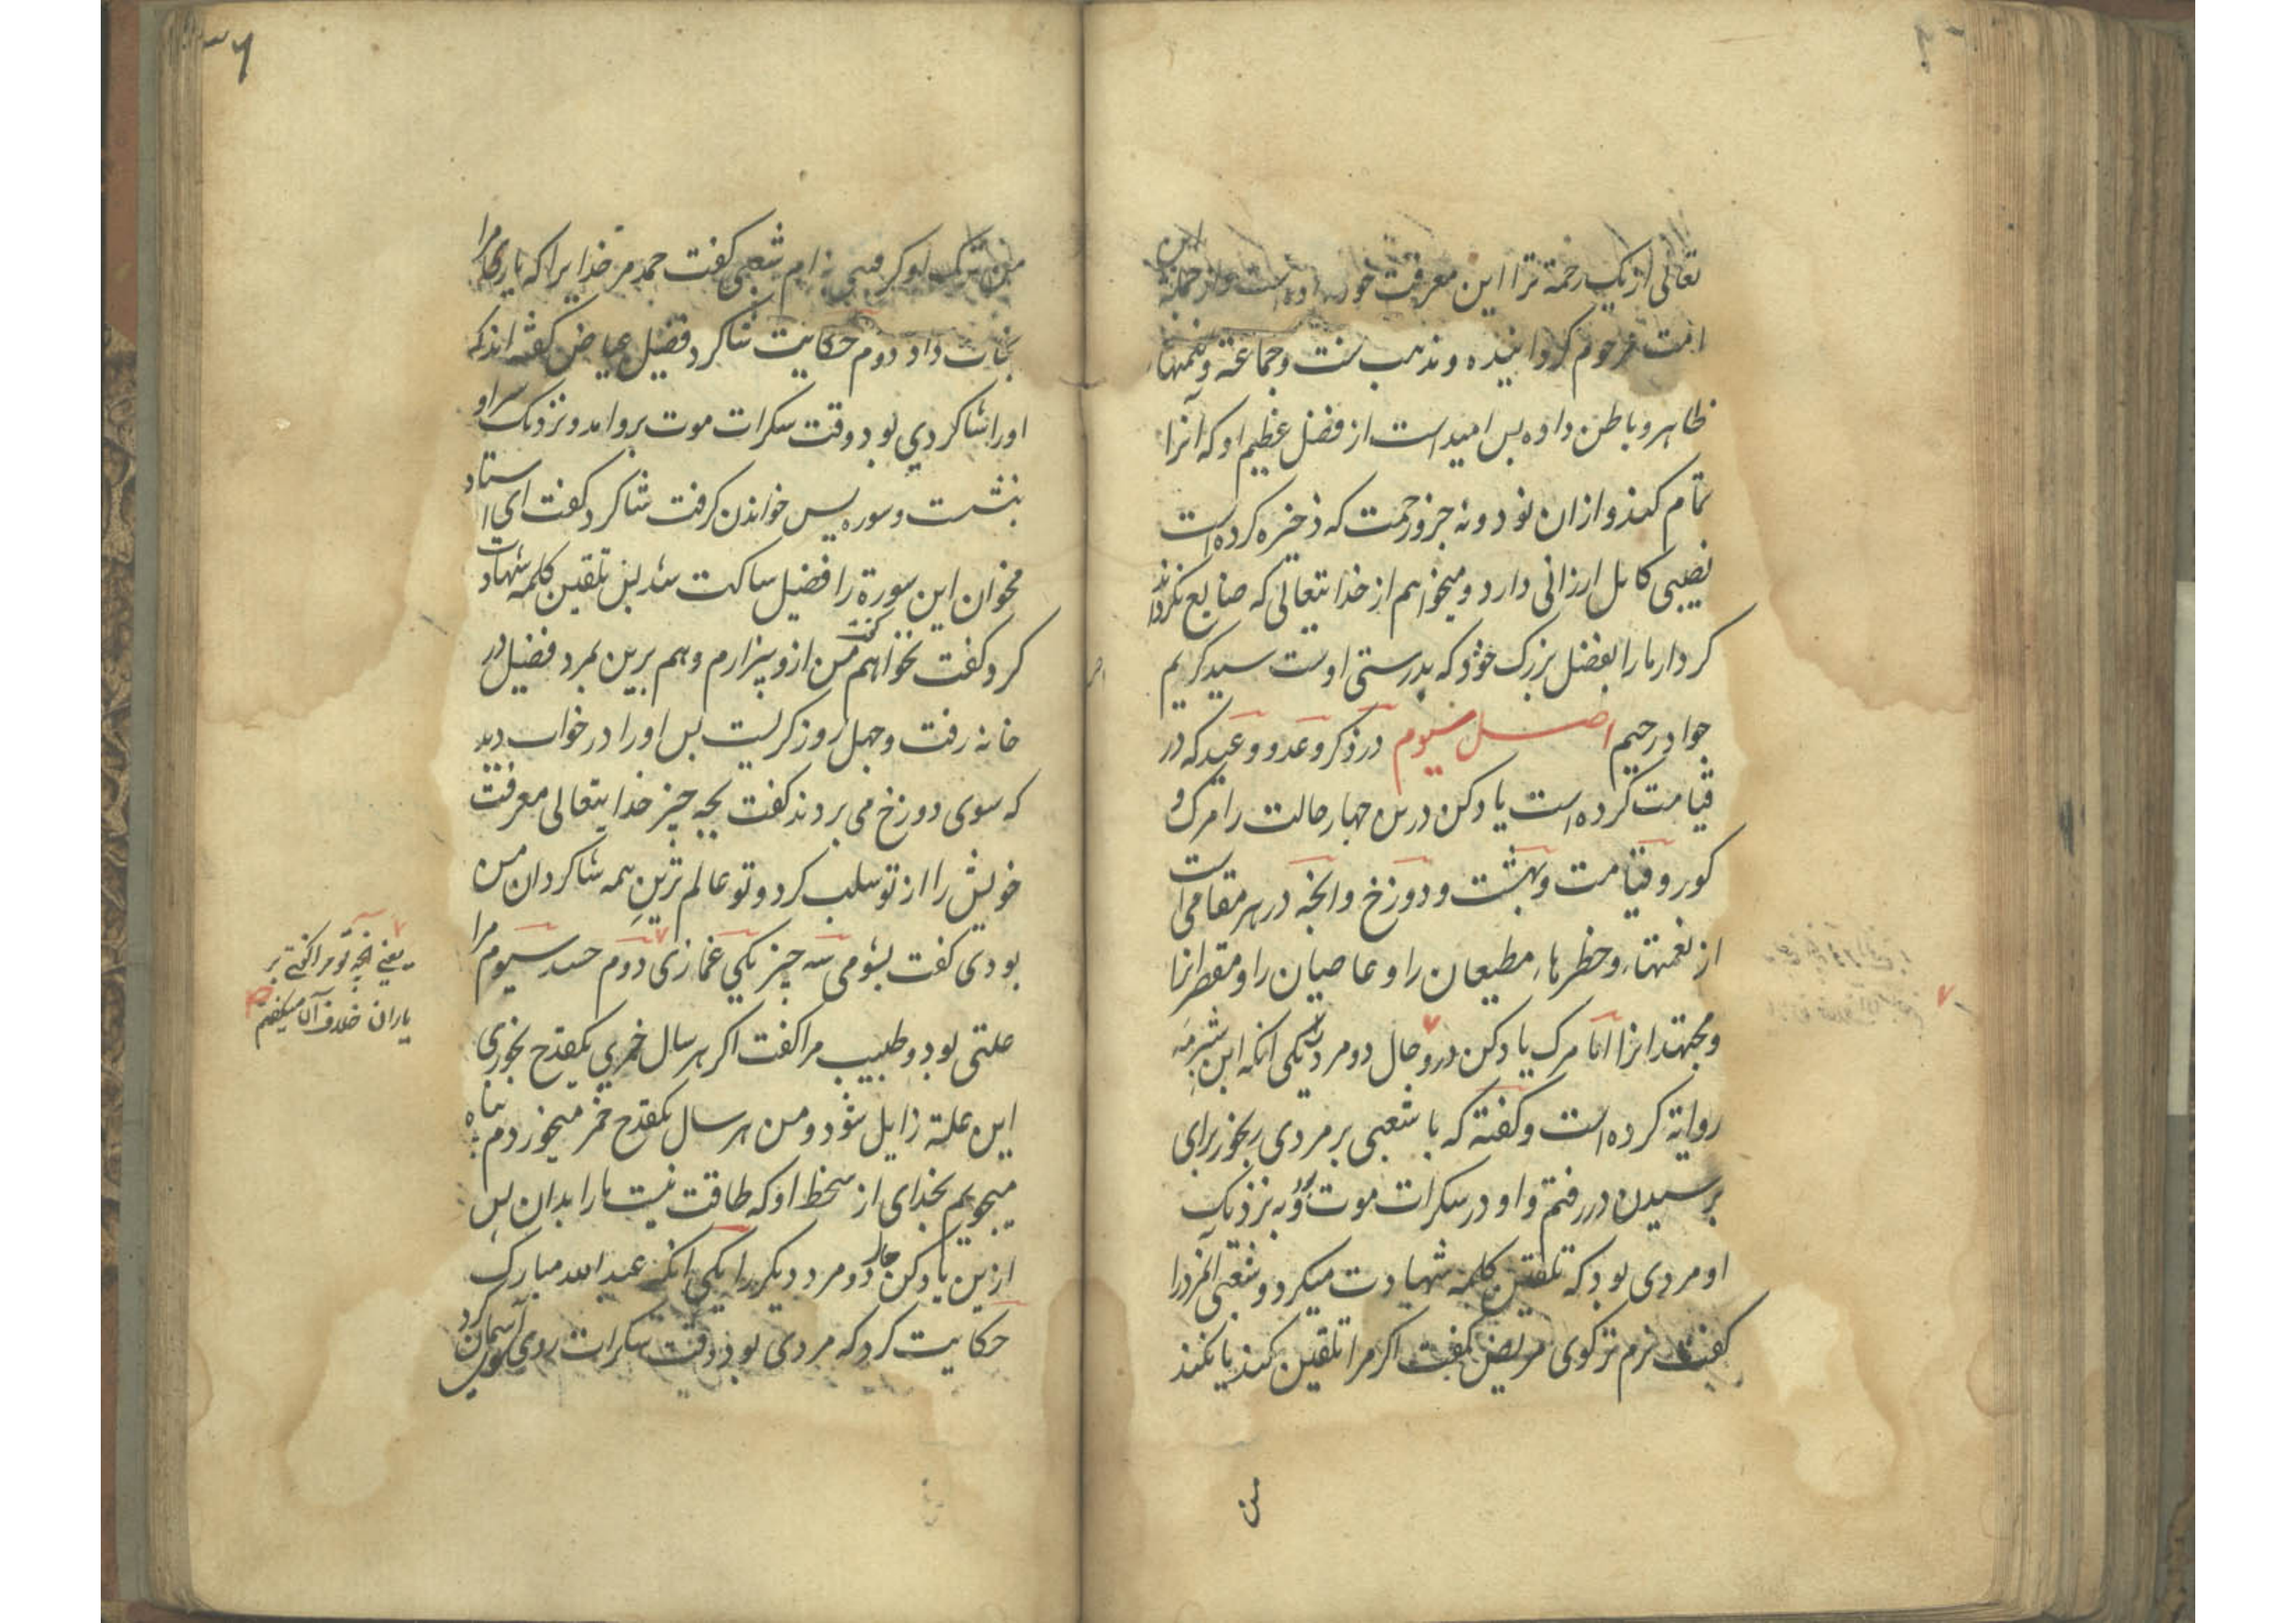 تعالی از یک رحمة ترا این معرفت خود داده است و از جمله این
امت مرحوم کردانیده و مذهب سنت و جماعة و نعمتهاء
ظاهر و باطن داده پس امید است از فضل عظیم او که آنرا
تمام کند و از ان نود و نه جزو رحمت که ذخیره کرده است
نصیبی کامل ارزانی دارد و میخواهم از خدایتعالی که ضایع نکرداند
کردار ما را بفضل بزرک خود که بدرستی اوست سید کریم
جواد رحیم اصل سیوم در ذکر وعد و وعید که در
قیامت کرده است یاد کن درین چهار حالت را مرک و
کور و قیامت و بهشت و دوزخ و انچه در هر مقامی است
از نعمتهاء و خطرهاء مطیعان را و عاصیان را و مقصرانرا
و مجتهدانرا اما مرک یاد کن درو حال دو مرد را یکی انکه ابن شبرمه
روایة کرده است و کفته که با شعبی بر مردی رنجور برای
پرسیدن در رفتم و او در سکرات موت بود و به نزدیک
او مردی بود که تلقین کلمه شهادت میکرد و شعبی انمرد را
کفت نرم تر کوی مریض کفت اکر مرا تلقین کند یا نکند
من
من ترک او کرفتنی نه ام شعبی کفت حمد مر خدایرا که یار ما را
نجات داد دوم حکایت شاکرد فضیل عیاض کفته اند که
او را شاکردی بود وقت سکرات موت برو امد و نزدیک سر او
بنشست و سوره یس خواندن کرفت شاکرد کفت ای استاد
مخوان این سورة را فضیل ساکت شد پس تلقین کلمه شهادت
کرد کفت نخواهم کفت من ازو بیزارم و هم برین بمرد فضیل در
خانه رفت و چهل روز کریست پس او را در خواب دید
که سوی دوزخ می بردند کفت بچه چیز خدایتعالی معرفت
خویش را از تو سلب کرد و تو عالم ترین همه شاکردان من
بودی کفت بشومی سه چیز یکی غمازی دوم حسد سیوم مرا
علتی بود و طبیب مرا کفت اکر هر سال خمری یکقدح بخوری
این علة زایل شود و من هر سال یکقدح خمر میخوردم پناه
میجویم بخدای از سخط او که طاقت نیست ما را بدان پس
ازین یاد کن حال دو مرد دیکر را یکی انکه عبد الله مبارک
حکایت کرد که مردی بود وقت سکرات روی سوی آسمان کرد
یعنی انچه تو مرا کفتی بر
یاران خلاف آن میکفتم